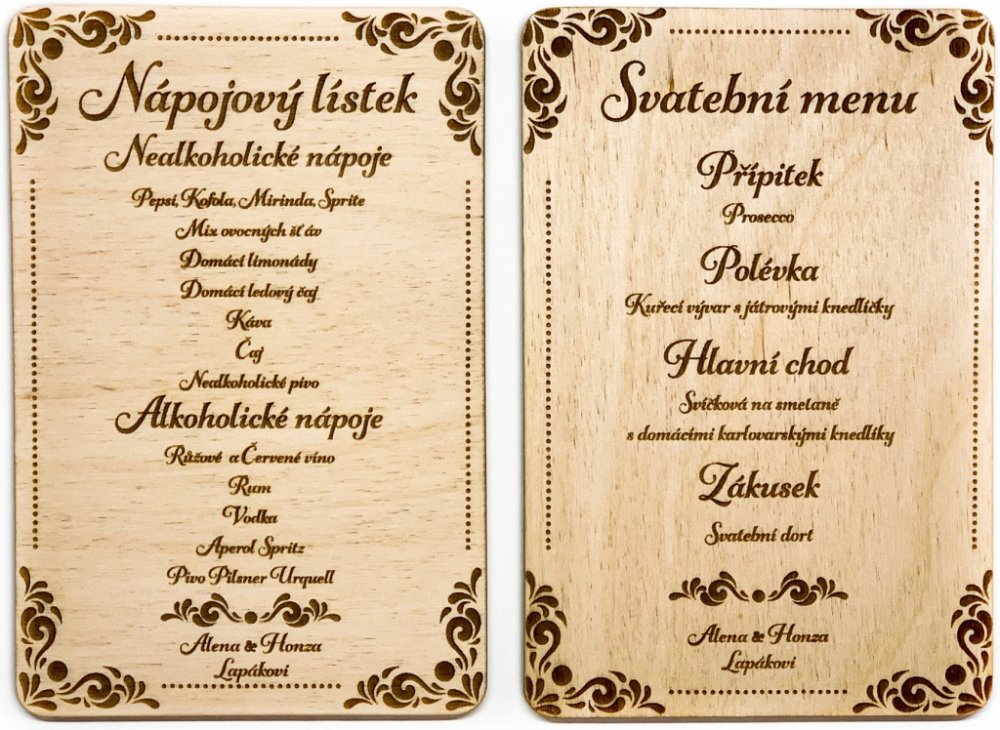 Nápojový lístek
Nealkoholické nápoje
Pepsi, Kofola, Mirinda, Sprite
Mix ovocných šť áv
Domácí limonády
Domácí ledový čaj
Káva
Čaj
Nealkoholické pivo
Alkoholické nápoje
Růžové a Červené víno
Rum
Vodka
Aperol Spritz
Pivo Pilsner Urquell
Alena & Honza
Lapákovi
Svatební menu
Přípitek
Prosecco
Polévka
Kuřecí vývar s játrovými knedlíčky
Hlavní chod
Svíčková na smetaně
s domácími karlovarskými knedlíky
Zákusek
Svatební dort
Alena & Honza
Lapákovi